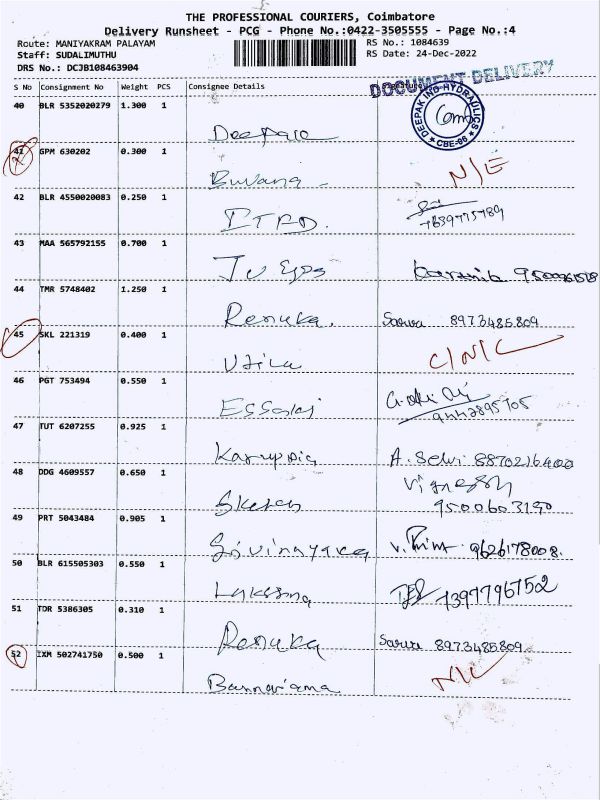 THE PROFESSIONAL COURIERS, Coimbatore
Delivery Runsheet - PCG - Phone No.:0422-3505555 - Page No.:4
Route: MANIYAKRAM PALAYAM RS No.: 1084639
Staff: SUDALIMUTHU RS Date: 24-Dec-2022
DRS No.: DCJB108463904
DOCUMENT DELIVERY
S No Consignment No Weight PCS Consignee Details Signature
40 BLR 5352020279 1.300 1
DEEPAK ING-HYDRAULICS
CBE-06
Deepara
41 GPM 630202 0.300 1
Buvana N/E
42 BLR 4550020083 0.250 1
43 MAA 565792155 0.700 1
44 TMR 5748402 1.250 1
Renuka. Sarwa 8973485809
45 SKL 221319 0.400 1
46 PGT 753494 0.550 1
Essakej
47 TUT 6207255 0.925 1
Karuppia A. Selvi 8870216400
48 DDG 4609557 0.650 1
Vignesh
9500603190
49 PRT 5043484 0.905 1
Srivinnyaka 9626178008.
50 BLR 615505303 0.550 1
7397796752
51 TDR 5386305 0.310 1
Renuka Sarwa 8973485809
52 IXM 502741750 0.500 1
Bannariama N/C